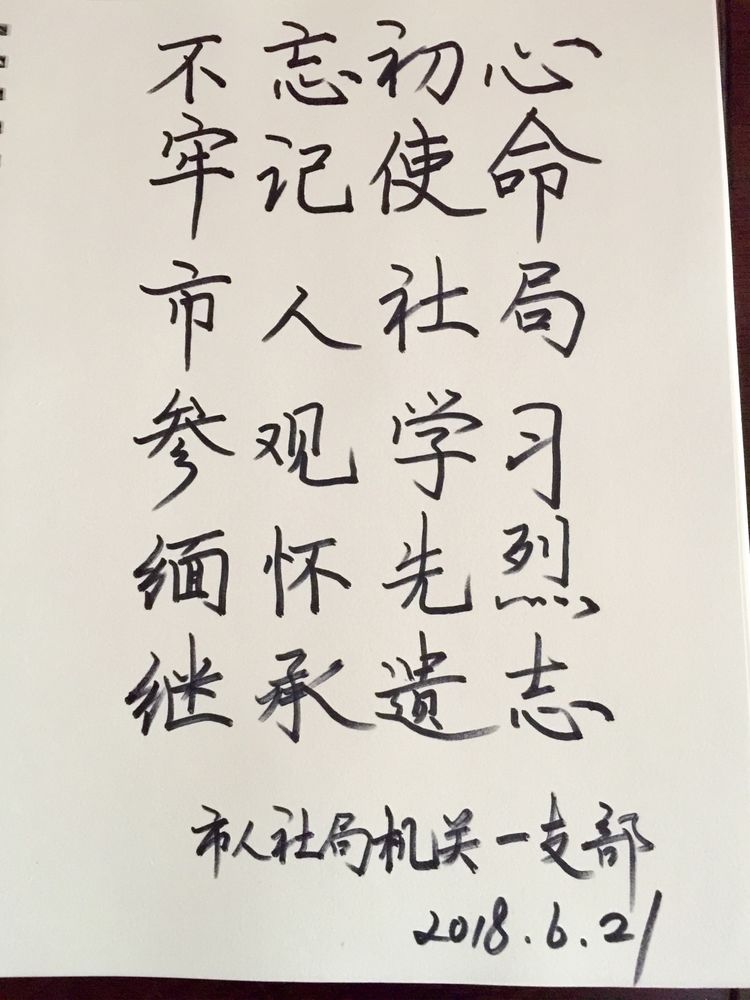 不忘初心
牢记使命
市人社局
参观学习
缅怀先烈
继承遗志
市人社局机关一支部
2018.6.21